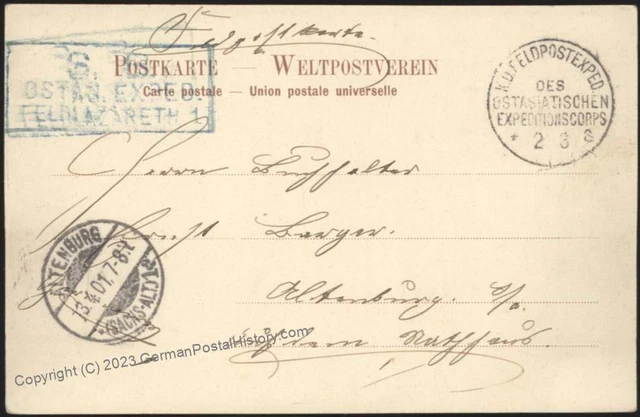 Feldpostkarte.
POSTKARTE — WELTPOSTVEREIN
Carte postale — Union postale universelle
S.
OSTAS. EXPED.
FELDLAZARETH 1
K.D. FELDPOSTEXPED.
DES
OSTASIATISCHEN
EXPEDITIONSCORPS
* 2 3
Herrn Buchhalter
Ernst Barger.
Altenburg. S/a.
dem Rathhaus.
ALTENBURG
13.4.01.7-8V.
(SACHS-ALT.)
Copyright (C) 2023 GermanPostalHistory.com